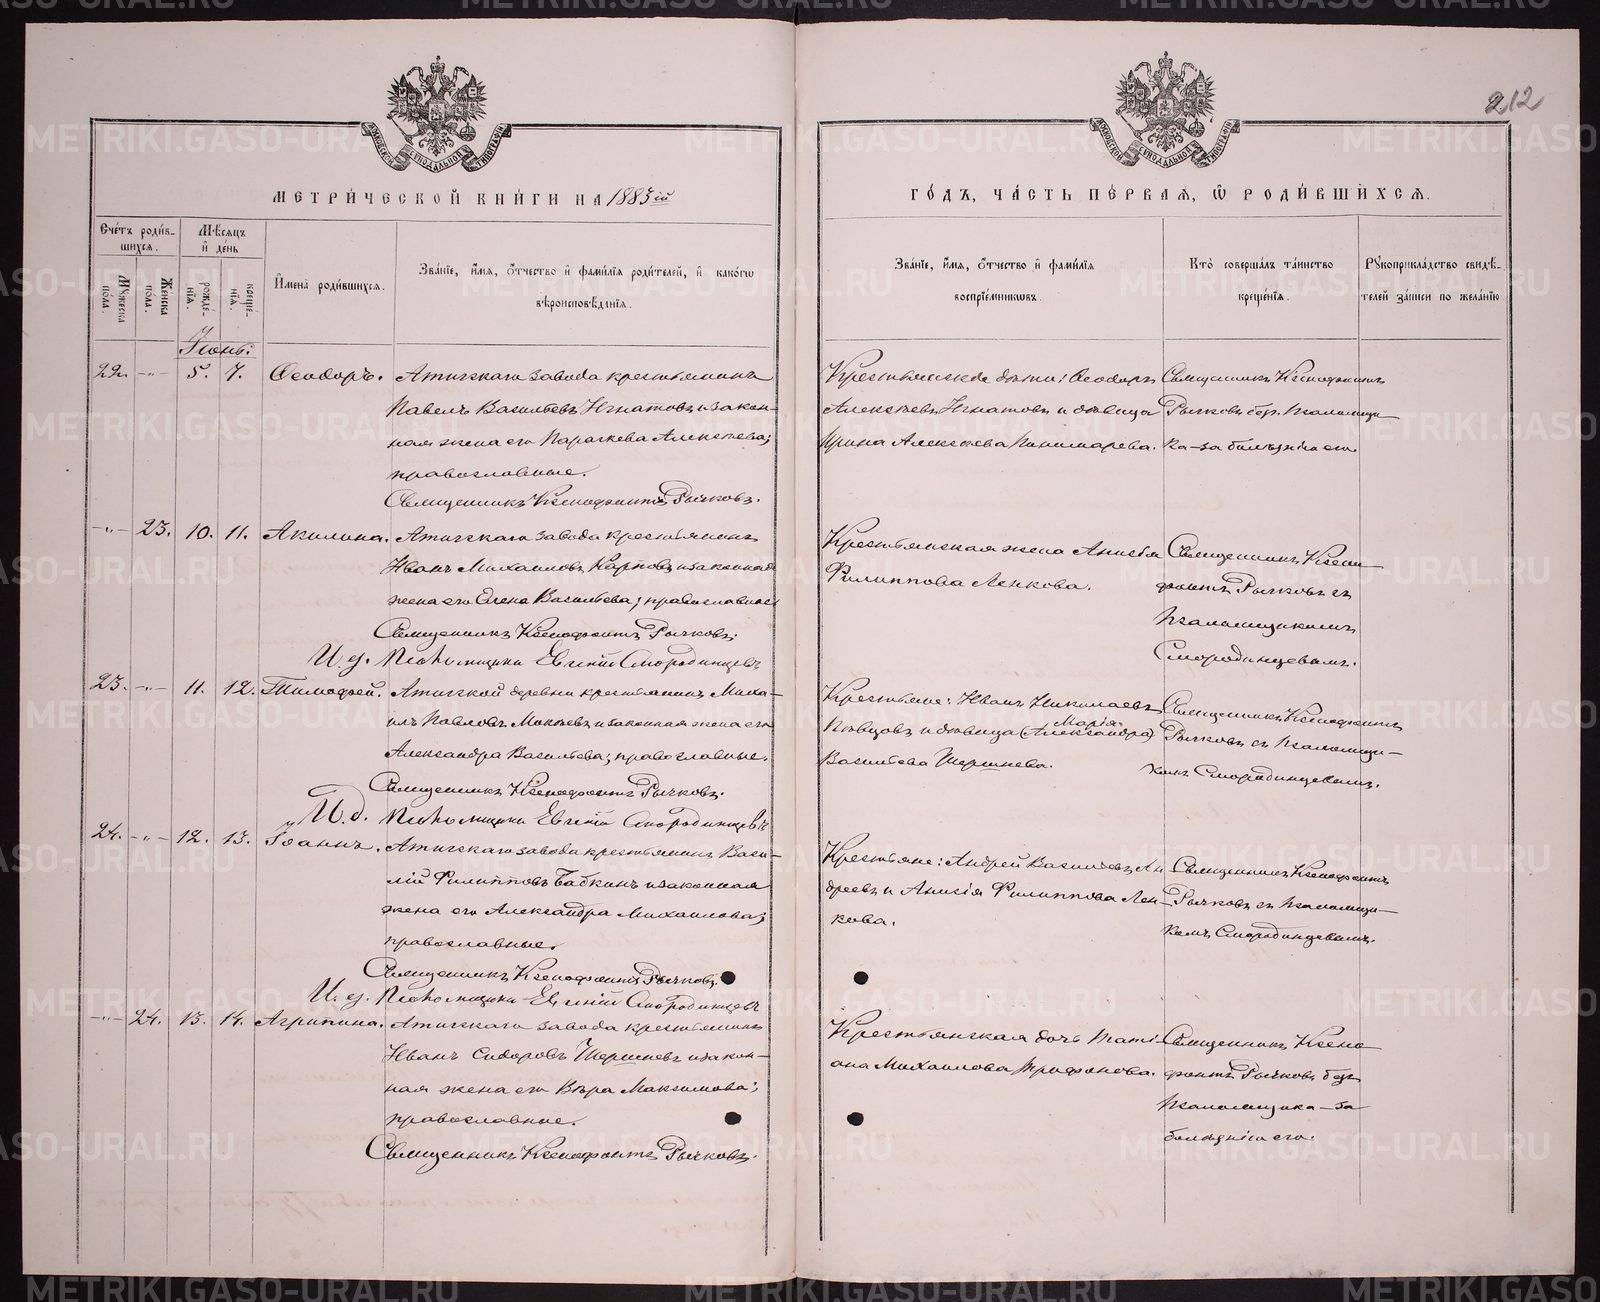 212
МЕТРИ́ЧЕСКОЙ КНИ́ГИ НА 1883ій
ГО́ДЪ, ЧА́СТЬ ПЕ́РВАЯ, Ѽ РОДИ́ВШИХСЯ.
Сче́тъ роди́в-
шихся.
Мѣ́сяцъ
и҆ де́нь
Мꙋ́жеска по́ла.
Же́нска по́ла.
рожде́-нїѧ.
креще́-нїѧ.
И҆мена̀ роди́вшихсѧ.
Зва́нїе, и҆́мѧ, ѻ҆́тчество и҆ фами́лїѧ роди́телей, и҆ како́гѡ
вѣроисповѣ́данїѧ.
Зва́нїе, и҆́мѧ, ѻ҆́тчество и҆ фами́лїѧ
воспрїе́мникѡвъ.
Кто̀ соверша́лъ та́инство
креще́нїѧ.
Рꙋкоприкла́дство свидѣ́-
телей за́писи по жела́нїю
Іюнь:
22. -„- 5. 7. Ѳеодоръ. Атигскаго завода крестьянинъ
Павелъ Васильевъ Игнатовъ и закон-
ная жена его Параскева Алексѣева;
православные.
Священникъ Ксенофонтъ Рычковъ.
Крестьянскія дѣти: Ѳеодоръ
Алексѣевъ Игнатовъ и дѣвица
Ирина Алексѣева Пономарева.
Священникъ Ксенофонтъ
Рычковъ без. псаломщи-
ка-за болѣзнію его.
-„- 23. 10. 11. Акилина. Атигскаго завода крестьянинъ
Иванъ Михаиловъ Карповъ и законная
жена его Елена Васильева; православные
Священникъ Ксенофонтъ Рычковъ.
И. д. Псаломщика Евгеній Смородинцевъ
Крестьянская жена Анисія
Филиппова Ленкова.
Священникъ Ксено-
фонтъ Рычковъ съ
псаломщикомъ
Смородинцевымъ.
23. -„- 11. 12. Тимофей. Атигской деревни крестьянинъ Миха-
илъ Павловъ Мокѣевъ и законная жена его
Александра Васильева; православные.
Священникъ Ксенофонтъ Рычковъ.
И. д. Псаломщика Евгеній Смородинцевъ
Крестьяне: Иванъ Николаевъ
Марія
Пѣвцовъ и дѣвица (Александра)
Васильева Шершнева.
Священникъ Ксенофонтъ
Рычковъ съ псаломщи-
комъ Смородинцевымъ.
24. -„- 12. 13. Іоаннъ. Атигскаго завода крестьянинъ Васи-
лій Филипповъ Бабкинъ и законная
жена его Александра Михаилова;
православные.
Священникъ Ксенофонтъ Рычковъ
И. д. Псаломщика Евгеній Смородинцевъ
Крестьяне: Андрей Васильевъ Ан
дреевъ и Анисія Филиппова Лен-
кова.
Священникъ Ксенофонтъ
Рычковъ съ псаломщи-
комъ Смородинцевымъ.
-„- 24. 13. 14. Агрипина. Атигскаго завода крестьянинъ
Иванъ Сидоровъ Шершневъ и закон-
ная жена его Вѣра Максимова;
православные.
Священникъ Ксенофонтъ Рычковъ.
Крестьянская дочь Таті-
ана Михаилова Трифонова.
Священникъ Ксено
фонтъ Рычковъ безъ
псаломщика-за
болѣзнію его.
METRIKI.GASO-URAL.RU